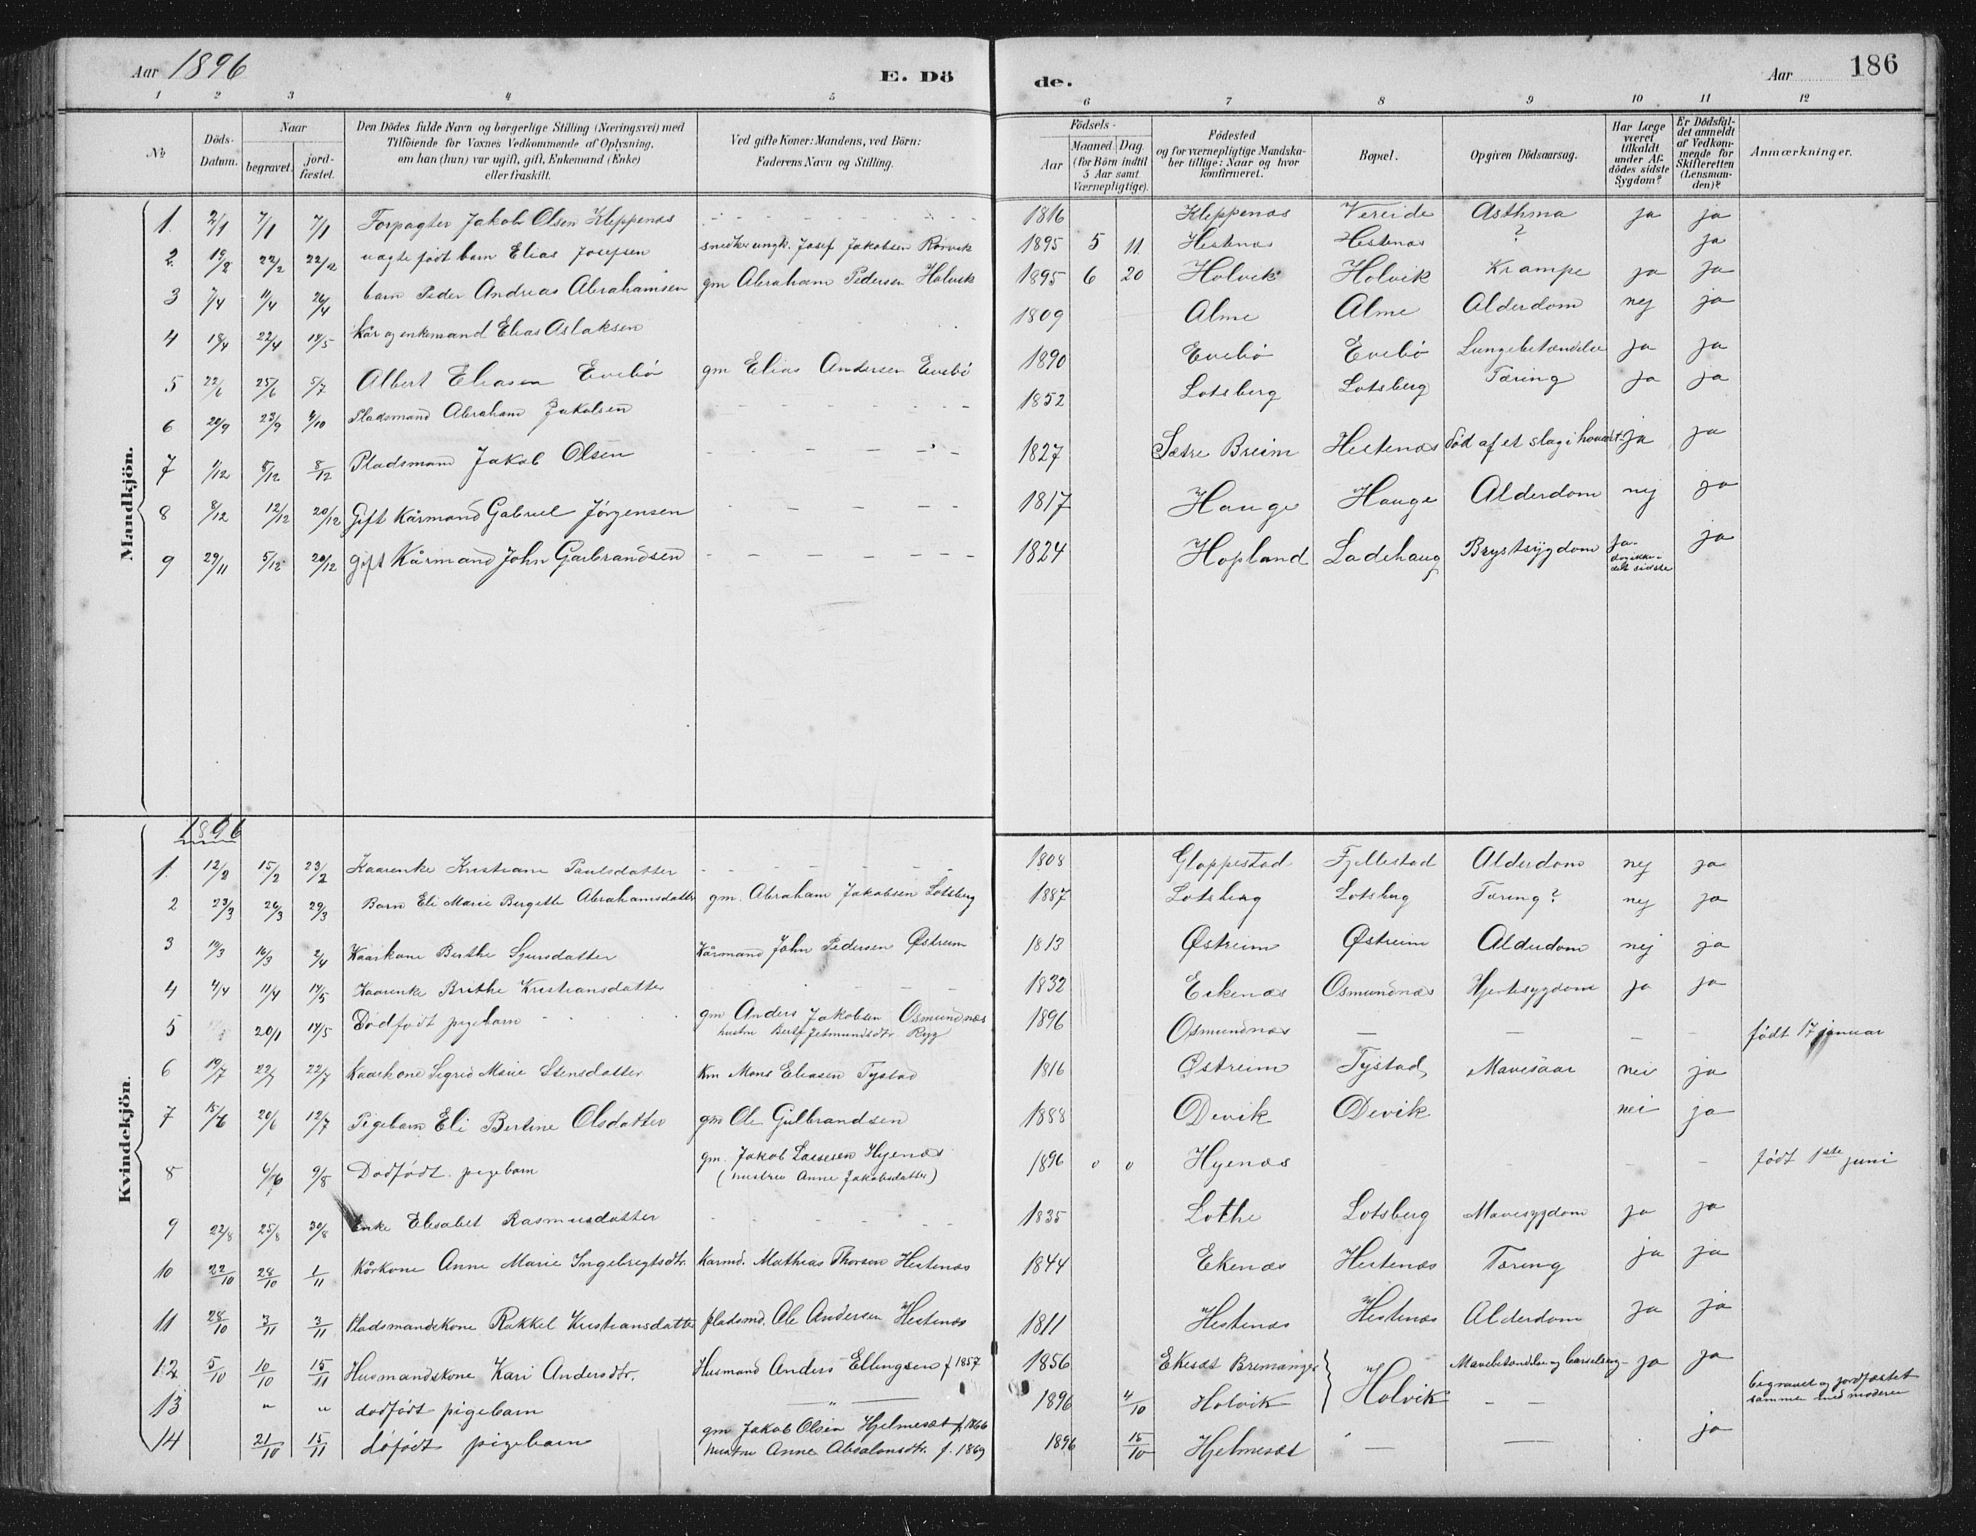 Aar 1896 E. Dö de. Aar 186
1 2 3 4 5 6 7 8 9 10 11 12
№ Döds-Datum. Naar begravet. jordfæstet. Den Dödes fulde Navn og borgerlige Stilling (Næringsvei) med Tilföiende for Voxnes Vedkommende af Oplysning, om han (hun) var ugift, gift, Enkemand (Enke) eller fraskilt. Ved gifte Koner: Mandens, ved Börn: Faderens Navn og Stilling. Födsels- Aar Maaned Dag (for Börn indtil 5 Aar samt Værnepligtige). Födested og for værnepligtige Mandskaber tillige: Naar og hvor konfirmeret. Bopæl. Opgiven Dödsaarsag. Har Læge været tilkaldt under Afdödes sidste Sygdom? Er Dödsfaldet anmeldt af Vedkommende for Skifteretten (Lensmanden)? Anmærkninger.
Mandkjön.
1 2/1 7/1 7/1 Forpagter Jakob Olsen Kleppenæs 1816 Kleppenæs Vereide Asthma ja ja
2. 19/2 22/2 22/12 uægte født barn Elias Josefsen snedker ungk. Josef Jakobsen Rørvik 1895 5 11 Hestenæs Hestenæs ? ja
3 7/4 11/4 26/4 barn Peder Andreas Abrahamsen gm Abraham Pedersen Holvik 1895 6 20 Holvik Holvik Krampe ja ja
4 18/4 22/4 14/5 Kår og enkemand Elias Aslaksen 1809 Alme Alme Alderdom nej ja
5 22/6 25/6 5/7 Albert Eliasen Evebø gm Elias Andersen Evebø 1890 Evebø Evebø Lungebetændelse ja ja
6 20/9 23/9 4/10 Pladsmand Abraham Jakobsen 1852 Lotsberg Lotsberg Tæring ja ja
7 1/12 5/12 8/12 Pladsmand Jakob Olsen 1827 Sætre Breim Hestenæs død af et slag i hovedet ja ja
8 8/12 12/12 20/12 Gift Kårmand Gabriel Jørgensen 1817 Hauge Hauge Alderdom nej ja
9 29/11 5/12 20/12 gift Kårmand John Garbrandsen 1824 Hopland Ladehaug Brystsygdom ja - dog ikke - det sidste ja
Kvindekjön.
1896
1. 12/2 15/2 23/2 Kaarenke Kristiane Paulsdatter 1808 Gloppestad Fjellestad Alderdom nej ja
2 23/3 26/3 29/3 Barn Eli Marie Bergitte Abrahamsdatter gm. Abraham Jakobsen Lotsberg 1887 Lotsberg Lotsberg Tæring? nej ja
3 10/3 16/3 2/4 Kaarkone Berthe Sjursdatter Kårmand John Pedersen Østreim 1813 Østreim Østreim Alderdom nej ja
4 4/4 11/4 14/5 Kaarenke Brithe Kristiansdatter 1832 Eikenæs Osmundnæs Hjertesygdom ja ja
5 20/1 14/5 Dødfødt pigebarn gm Anders Jakobsen Osmundnæs 1896 Osmundnæs — — — født 17 januar
hustru Jetmundsdtr. Ryg
6 19/7 22/7 22/7 Kaarkone Sigrid Marie Stensdatter Km Mons Eliasen Tystad 1816 Østreim Tystad Mavesaar nei ja
7 15/6 20/6 12/7 Pigebarn Eli Bertine Olsdatter gm Ole Gulbrandsen 1888 Devik Devik nei ja
8 6/6 9/8 Dødfødt pigebarn gm. Jakob Lassesen Hyenæs 1896 0 0 Hyenæs født 1ste juni
(hustru Anne Jakobsdatter)
9 22/8 25/8 30/8 Enke Elisabet Rasmusdatter 1835 Lothe Lotsberg Mavesygdom ja ja
10 22/10 28/10 1/11 Kårkone Anne Marie Ingebrigtsdtr. Karmd. Mathias Thorsen Hestenæs 1844 Ekenæs Hestenæs Tæring ja ja
11 28/10 3/11 3/11 Pladsmandskone Rakkel Kristiansdatter pladsmd. Ole Andersen Hestenæs 1811 Hestenæs Hestenæs Alderdom ja ja
12 5/10 10/10 15/11 Husmandskone Kari Andersdtr. Husmand Anders Ellingsen f 1857 1856 Ekesæt Bremanger Holvik Mavebetændelse og barselseng ja ja
13 " " dødfødt pigebarn — " — 1896 4/10 Holvik — — begravet og jordfæstet sammen med moderen
14 21/10 15/11 døfødt pigebarn gm Jakob Olsen Hjelmesæt f. 1866 1896 15/10 Hjelmesæt — — ja
hustru Anne Absalonsdtr. f. 1869